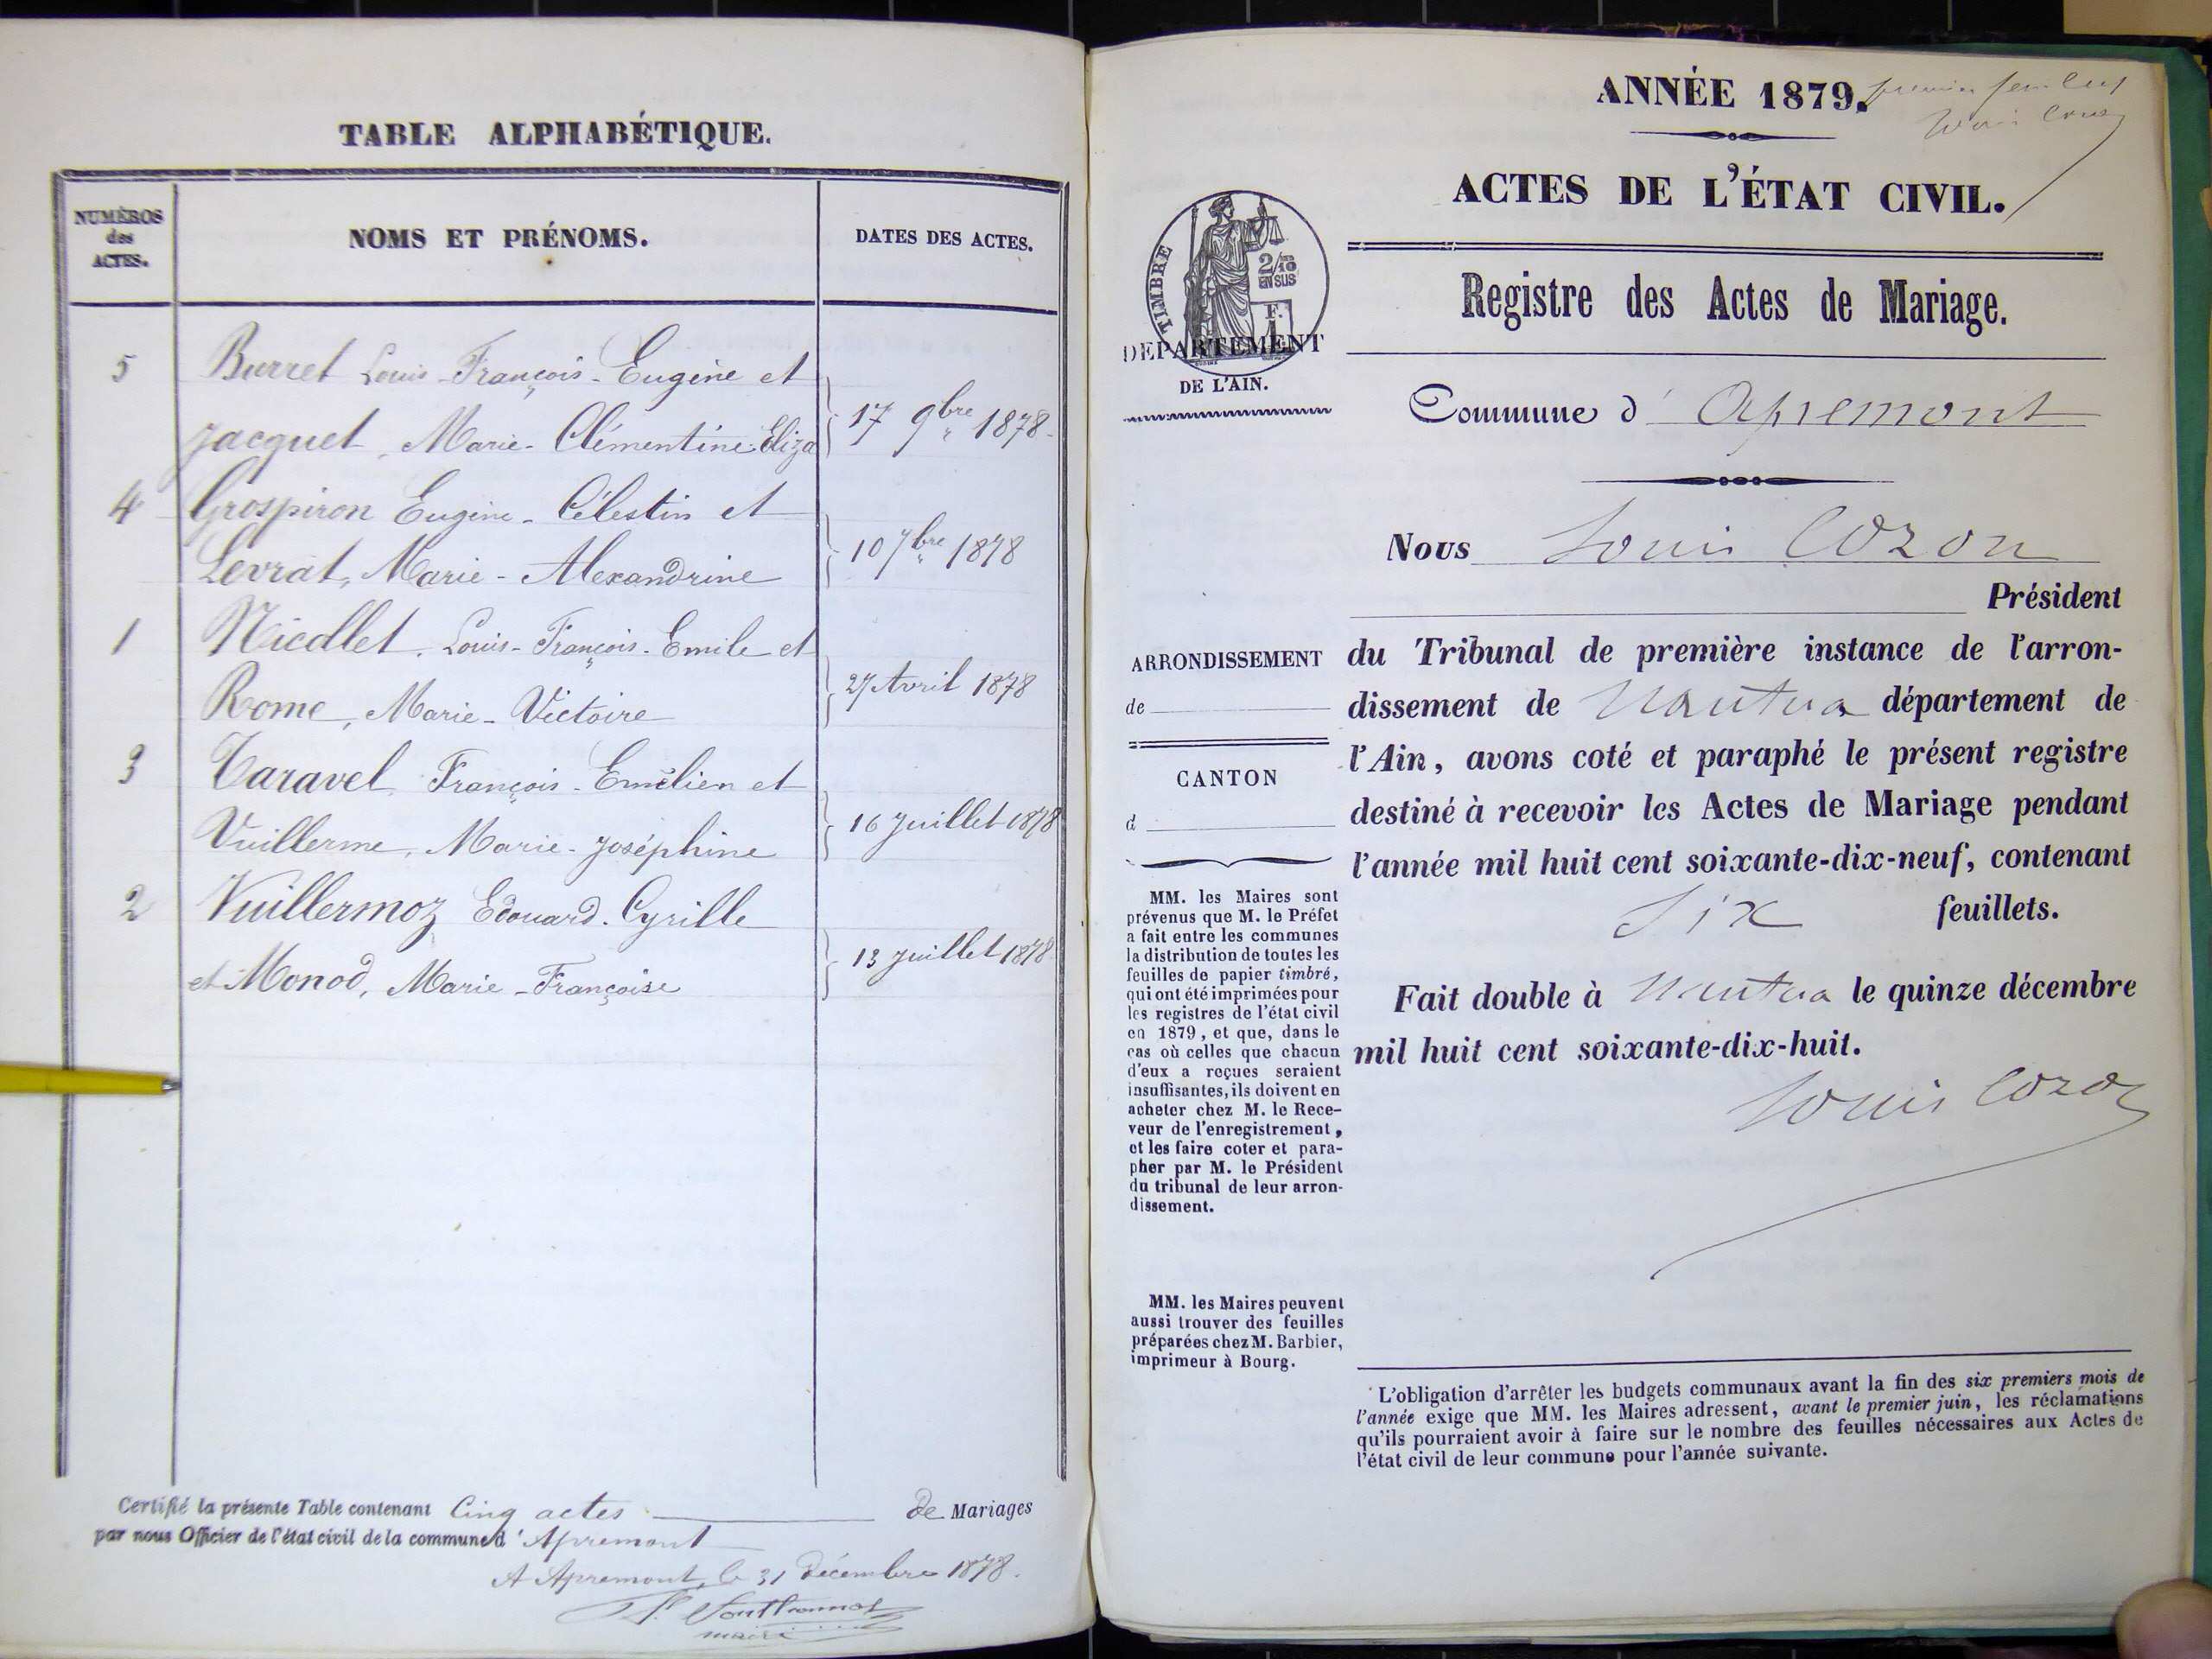 TABLE ALPHABÉTIQUE.
NUMÉROS
des
ACTES.
NOMS ET PRÉNOMS.
DATES DES ACTES.
5 Burret Louis-François-Eugène et
Jacquet, Marie-Clémentine-Eliza
17 9bre 1878
4 Grospiron Eugène-Célestin et
Levrat, Marie-Alexandrine
10 7bre 1878
1 Nicollet, Louis-François-Emile et
Rome, Marie-Victoire
27 Avril 1878
3 Taravel, François-Emélien et
Vuillerme, Marie-Joséphine
16 Juillet 1878
2 Vuillermoz Edouard-Cyrille
et Monod, Marie-Françoise
13 Juillet 1878
Certifié la présente Table contenant Cinq actes de Mariages
par nous Officier de l'état civil de la commune d'Apremont
A Apremont, le 31 Décembre 1878.
maire
ANNÉE 1879.
premier feuillet
Louis Cozon
ACTES DE L'ÉTAT CIVIL.
TIMBRE
2/10
EN SUS
F.
1
DÉPARTEMENT
DE L'AIN.
Registre des Actes de Mariage.
Commune d' Apremont
Nous Louis Cozon
Président
ARRONDISSEMENT
de
CANTON
d
du Tribunal de première instance de l'arron-
dissement de Nantua département de
l'Ain, avons coté et paraphé le présent registre
destiné à recevoir les Actes de Mariage pendant
l'année mil huit cent soixante-dix-neuf, contenant
Six feuillets.
Fait double à Nantua le quinze décembre
mil huit cent soixante-dix-huit.
Louis Cozon
MM. les Maires sont
prévenus que M. le Préfet
a fait entre les communes
la distribution de toutes les
feuilles de papier timbré,
qui ont été imprimées pour
les registres de l'état civil
en 1879, et que, dans le
cas où celles que chacun
d'eux a reçues seraient
insuffisantes, ils doivent en
acheter chez M. le Rece-
veur de l'enregistrement,
et les faire coter et para-
pher par M. le Président
du tribunal de leur arron-
dissement.
MM. les Maires peuvent
aussi trouver des feuilles
préparées chez M. Barbier,
imprimeur à Bourg.
L'obligation d'arrêter les budgets communaux avant la fin des six premiers mois de
l'année exige que MM. les Maires adressent, avant le premier juin, les réclamations
qu'ils pourraient avoir à faire sur le nombre des feuilles nécessaires aux Actes de
l'état civil de leur commune pour l'année suivante.